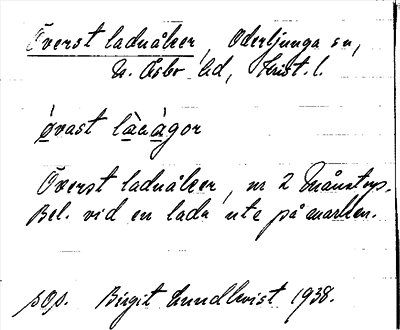 Överst ladnåker, Oderljunga sn,
N. Åsbo hd, Krist. l.
øvast làaàgor
Överst ladnåker, nr 2 Månstorp.
Bel. vid en lada ute på marken.
sOp. Birgit Lundkvist 1938.